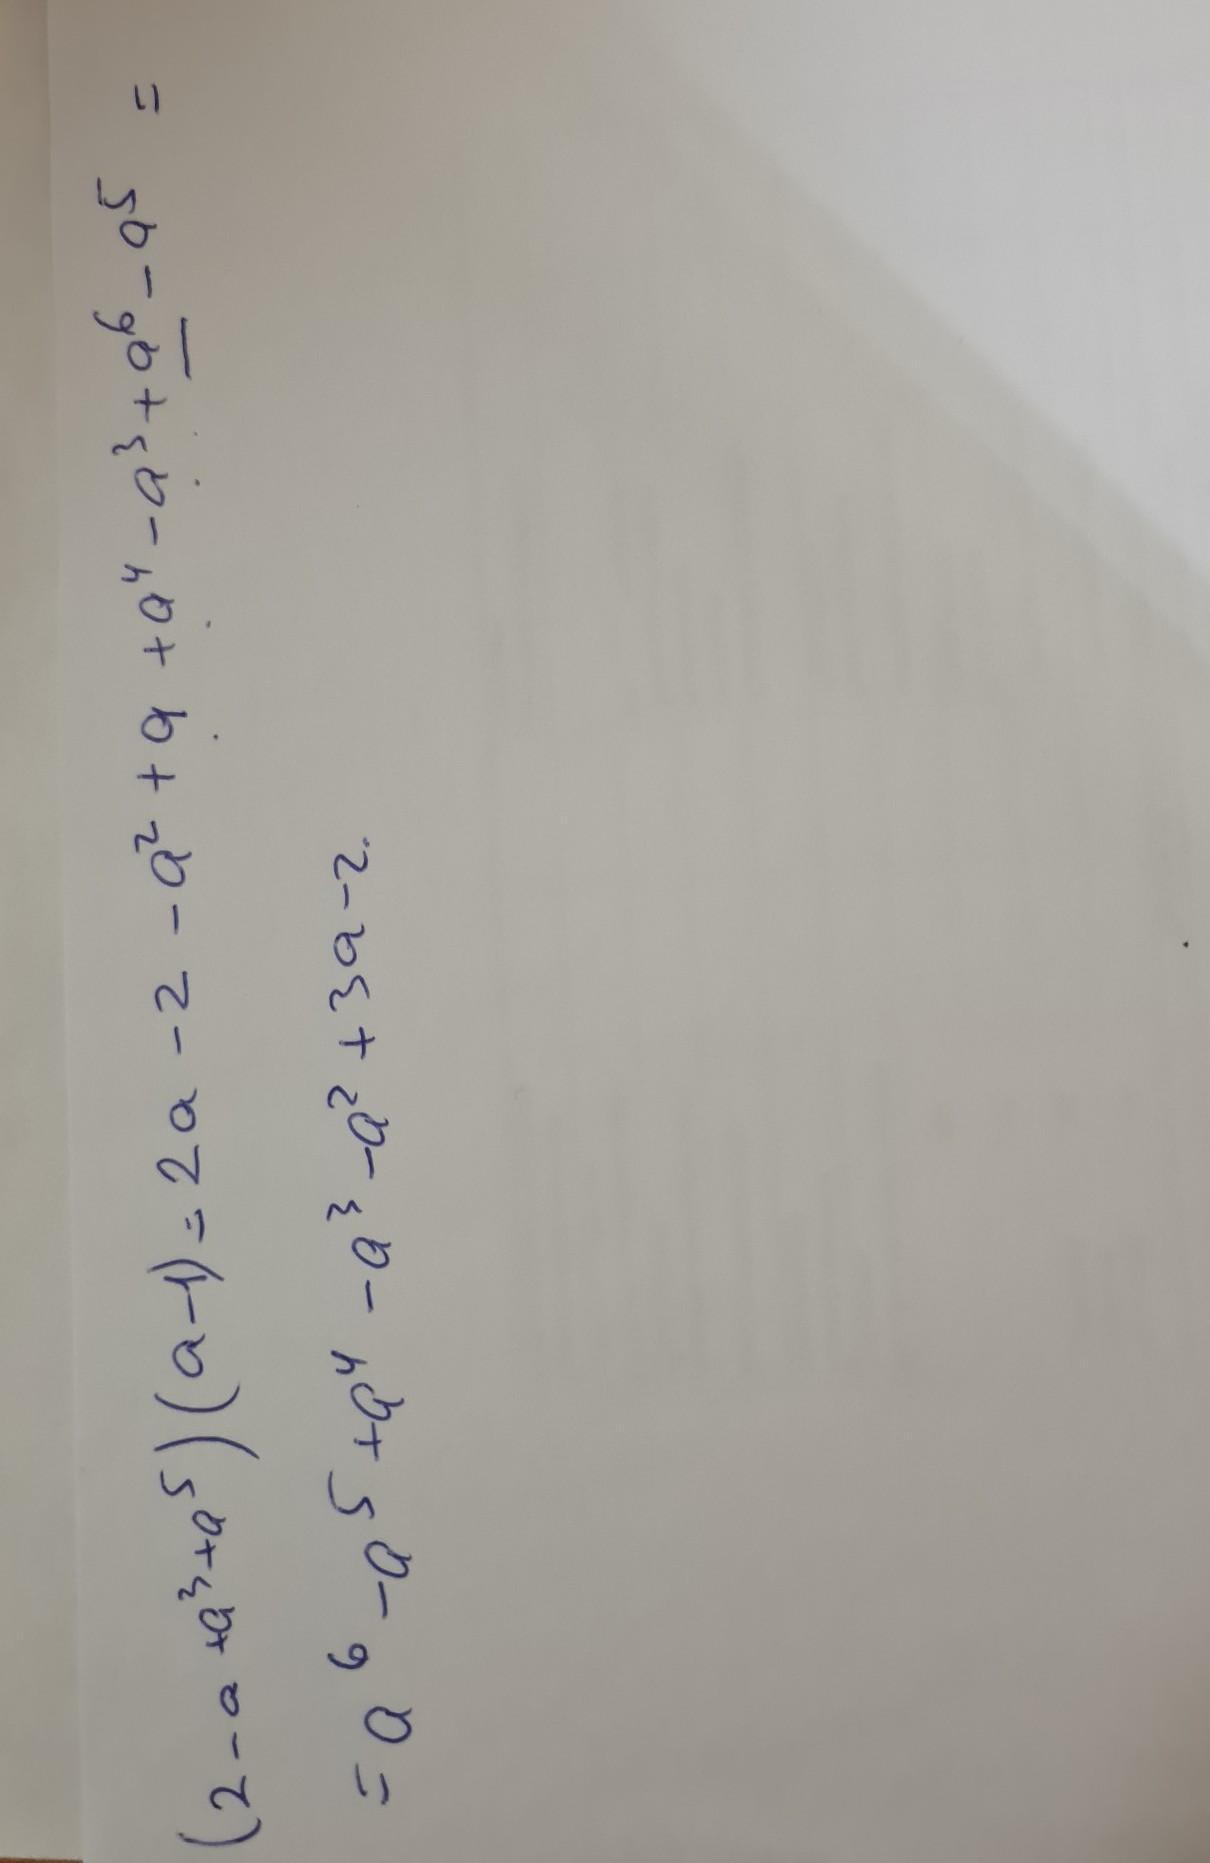 (2-a+a³+a⁵)(a-1)=2a-2-a²+a+a⁴-a³+a⁶-a⁵=
=a⁶-a⁵+a⁴-a³-a²+3a-2.